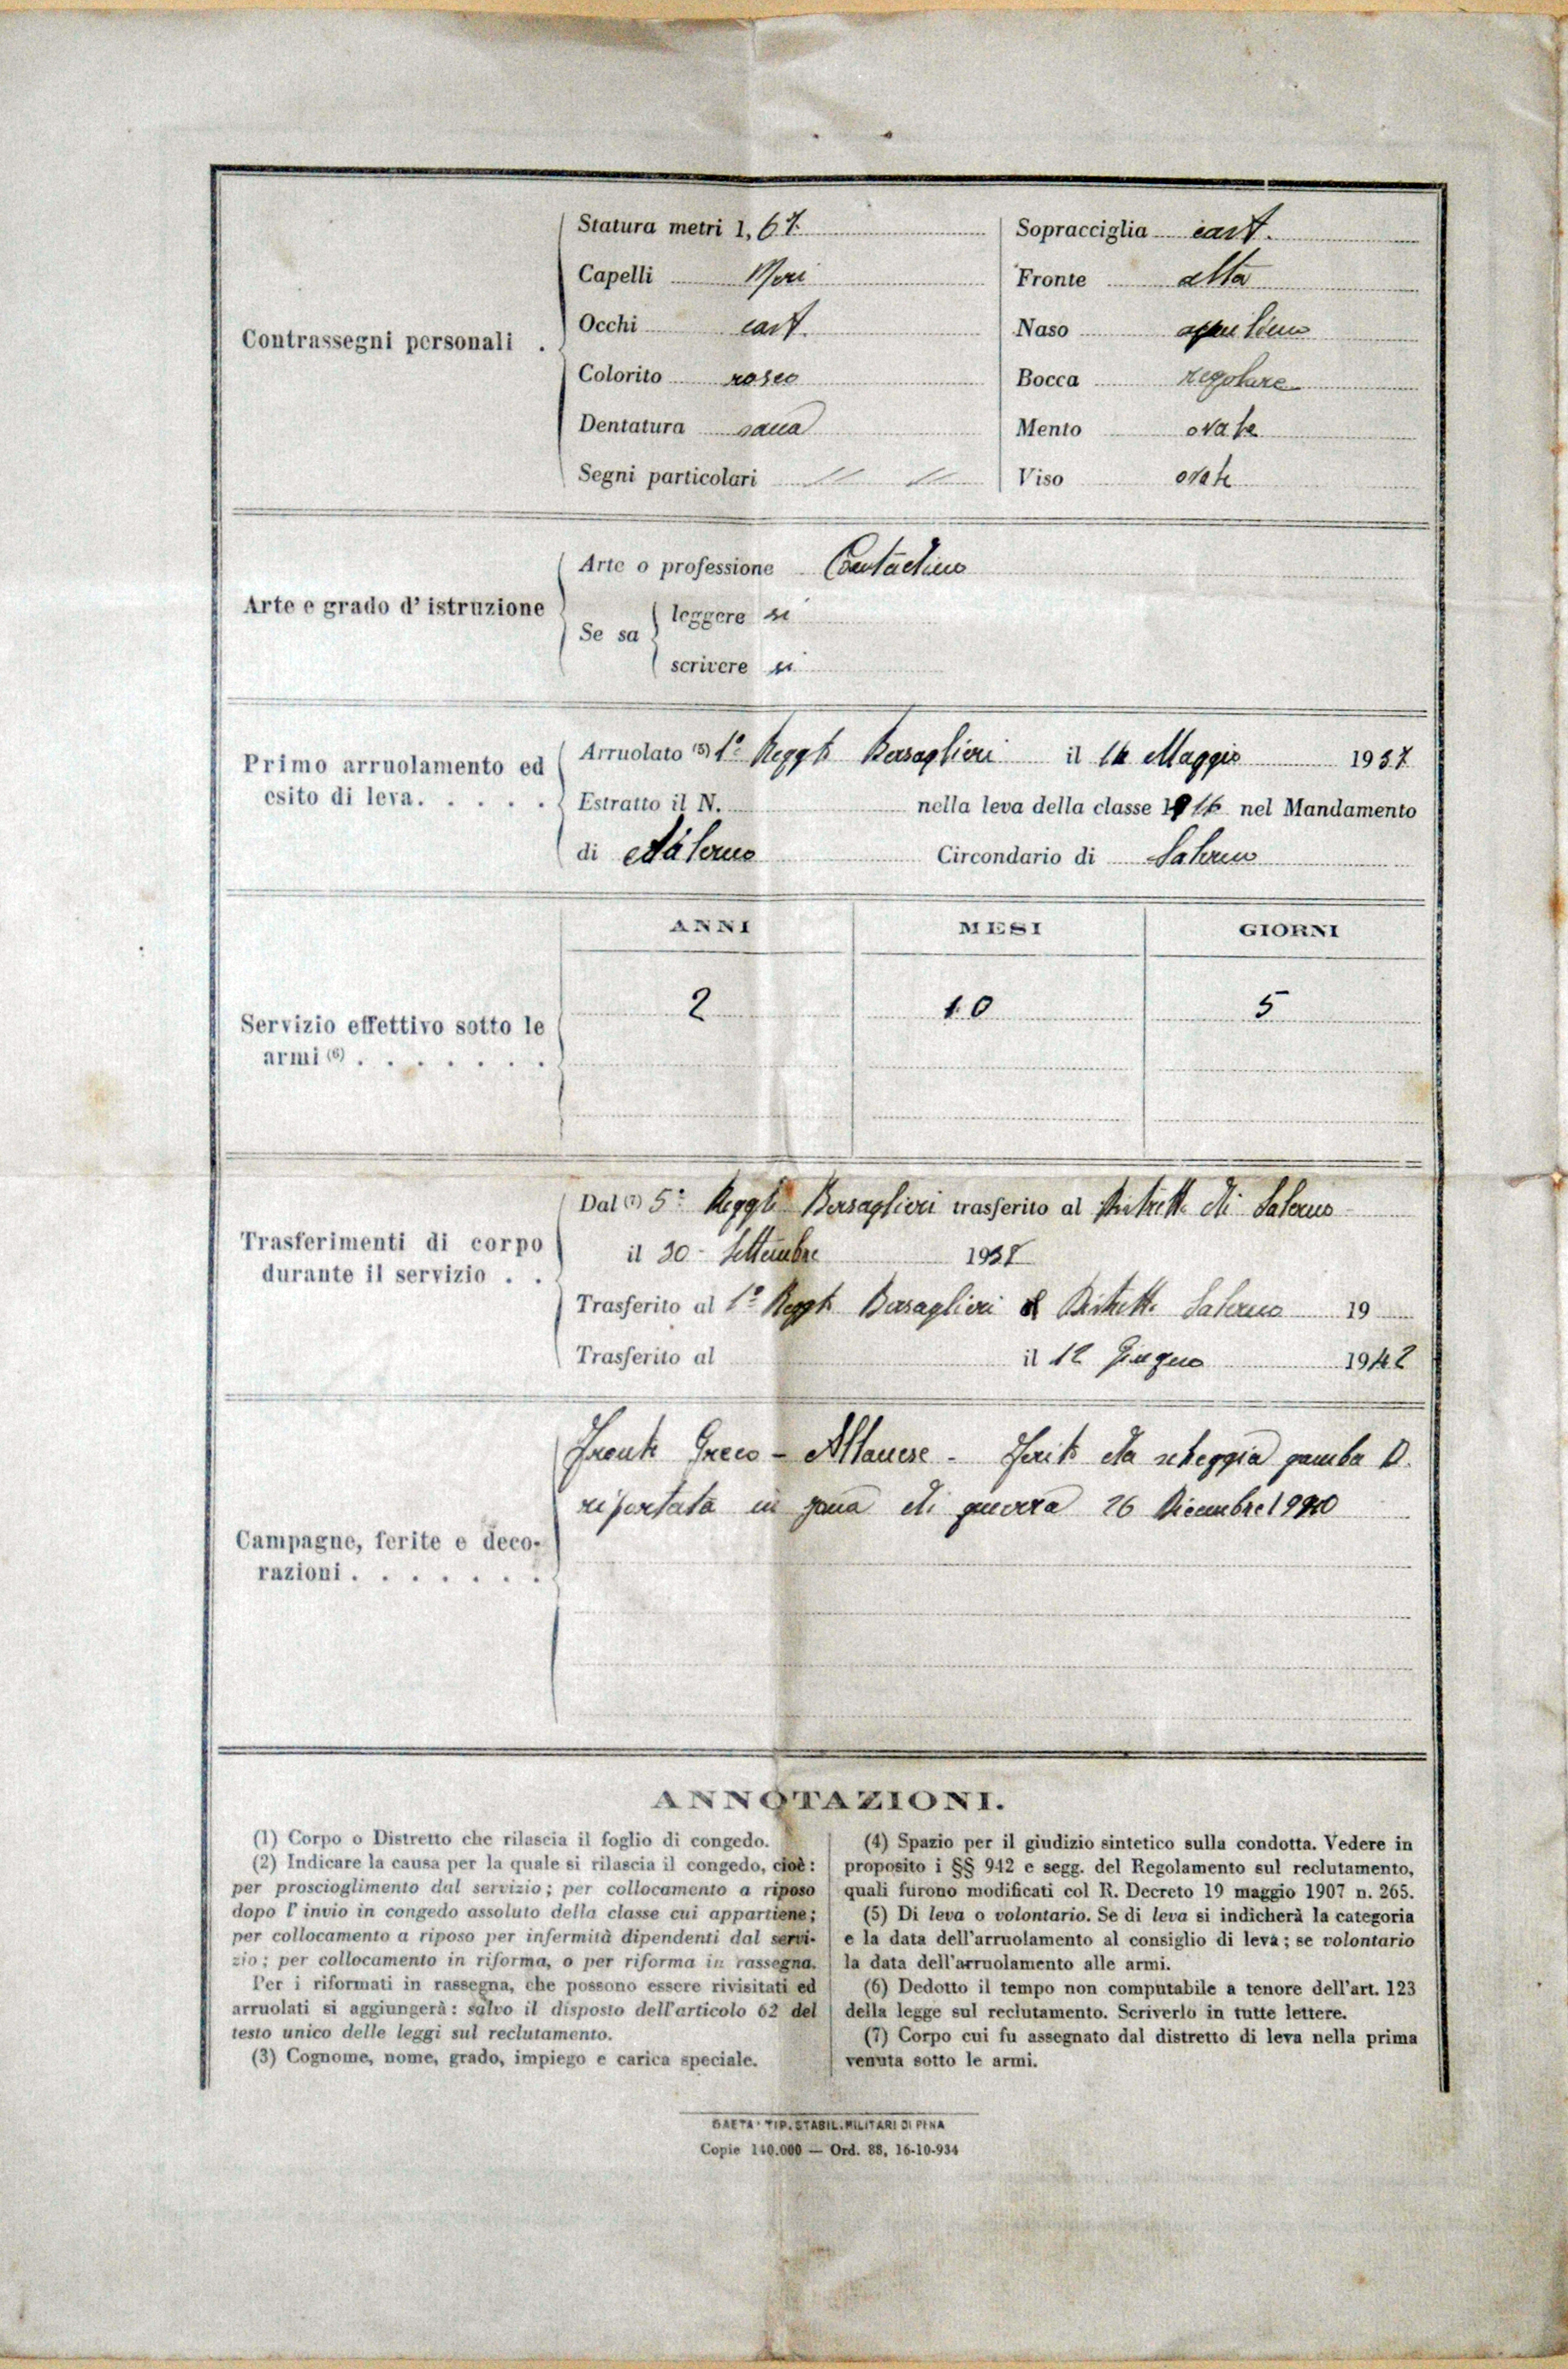 Contrassegni personali .
Statura metri 1,67
Capelli Neri
Occhi cast.
Colorito roseo
Dentatura sana
Segni particolari // //
Sopracciglia cast.
Fronte alta
Naso aquilino
Bocca regolare
Mento ovale
Viso ovale
Arte e grado d' istruzione
Arte o professione Contadino
Se sa
leggere si
scrivere si
Primo arruolamento ed
esito di leva. . . . . .
Arruolato (5) 1° Reggto Bersaglieri il Maggio 1937
Estratto il N. nella leva della classe 1916 nel Mandamento
di Salerno Circondario di Salerno
ANNI MESI GIORNI
Servizio effettivo sotto le
armi (6) . . . . . . .
2 10 5
Trasferimenti di corpo
durante il servizio . .
Dal (7) 5° Reggto Bersaglieri trasferito al Distretto di Salerno
il 30 - Settembre 193
Trasferito al 1° Reggto Bersaglieri Distretto Salerno 19
Trasferito al il 12 Giugno 1942
Campagne, ferite e deco-
razioni . . . . . . .
Fronte Greco - Albanese - Ferito da scheggia gamba D.
riportata in zona di guerra 26 Dicembre 1940
ANNOTAZIONI.
(1) Corpo o Distretto che rilascia il foglio di congedo.
(2) Indicare la causa per la quale si rilascia il congedo, cioè:
per proscioglimento dal servizio; per collocamento a riposo
dopo l' invio in congedo assoluto della classe cui appartiene;
per collocamento a riposo per infermità dipendenti dal servi-
zio; per collocamento in riforma, o per riforma in rassegna.
Per i riformati in rassegna, che possono essere rivisitati ed
arruolati si aggiungerà: salvo il disposto dell'articolo 62 del
testo unico delle leggi sul reclutamento.
(3) Cognome, nome, grado, impiego e carica speciale.
(4) Spazio per il giudizio sintetico sulla condotta. Vedere in
proposito i §§ 942 e segg. del Regolamento sul reclutamento,
quali furono modificati col R. Decreto 19 maggio 1907 n. 265.
(5) Di leva o volontario. Se di leva si indicherà la categoria
e la data dell'arruolamento al consiglio di leva; se volontario
la data dell'arruolamento alle armi.
(6) Dedotto il tempo non computabile a tenore dell'art. 123
della legge sul reclutamento. Scriverlo in tutte lettere.
(7) Corpo cui fu assegnato dal distretto di leva nella prima
venuta sotto le armi.
GAETA - TIP. STABIL. MILITARI DI PENA
Copie 110.000 — Ord. 88, 16-10-934